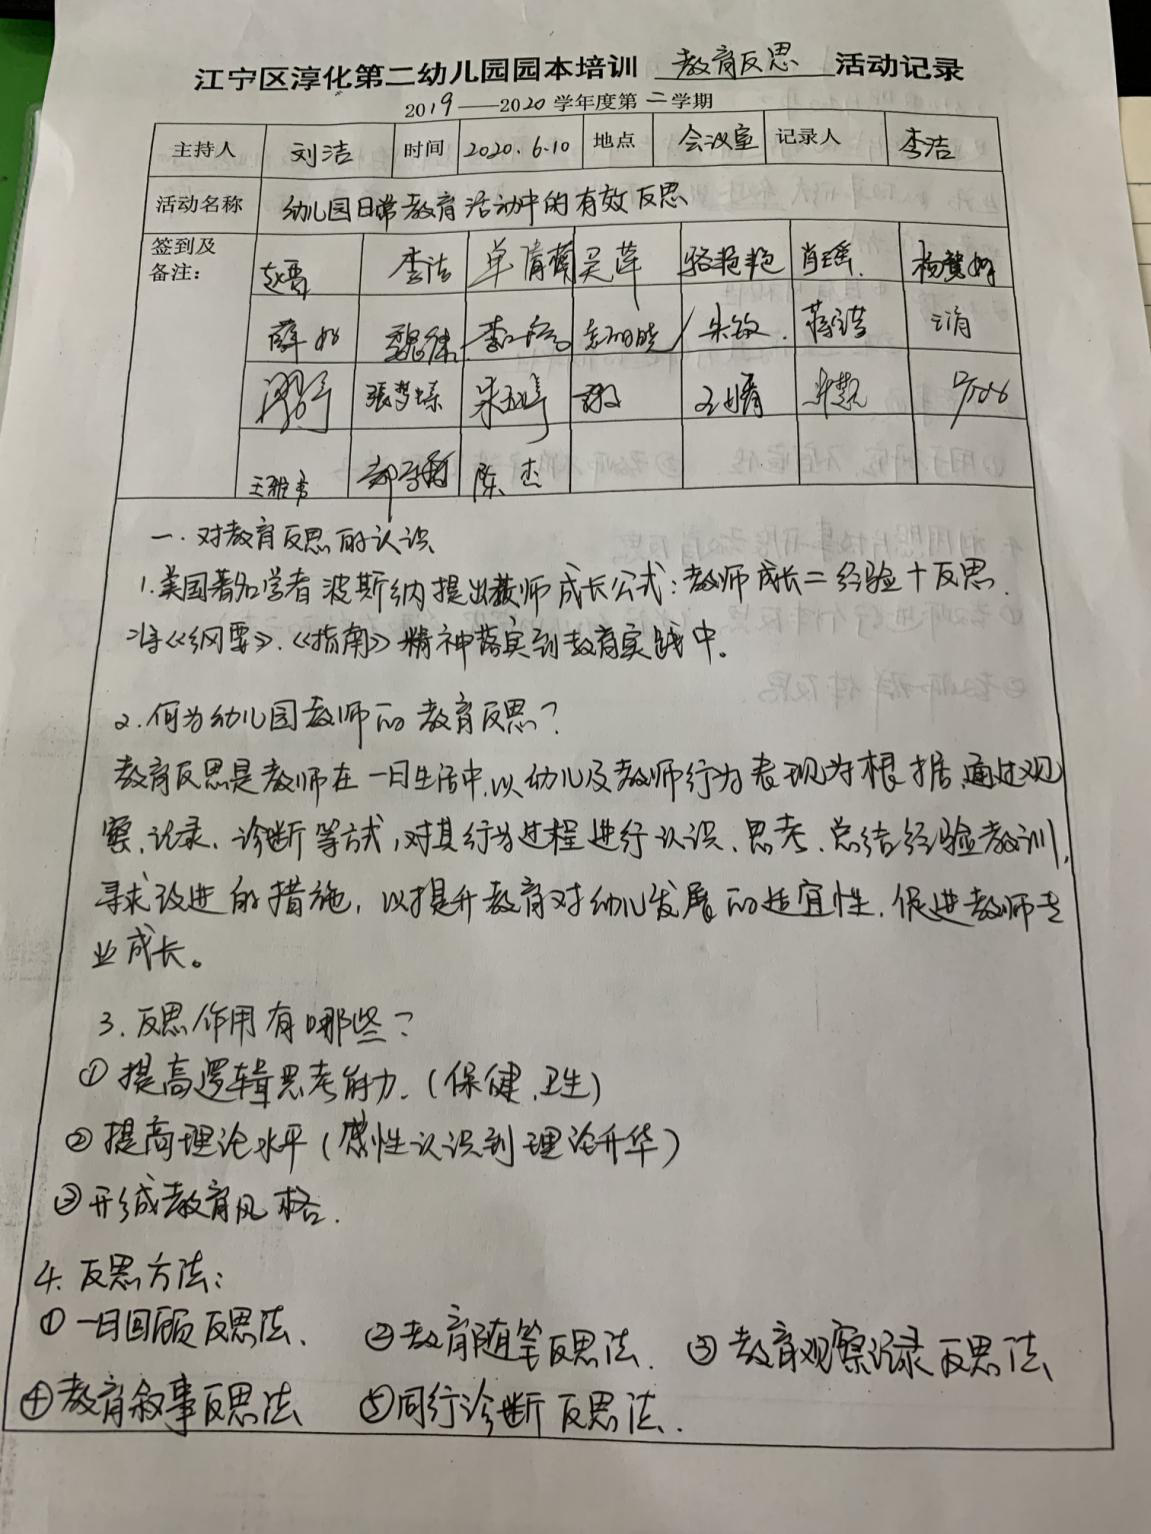 江宁区淳化第二幼儿园园本培训 教育反思 活动记录
2019——2020学年度第二学期
主持人 刘洁 时间 2020.6.10 地点 会议室 记录人 李洁
活动名称 幼儿园日常教育活动中的有效反思
签到及 李洁 吴萍 骆艳艳 肖瑶
备注:
薛 魏 朱敏
张梦 王婧
王雅 陈杰
一、对教育反思的认识
1.美国著名学者波斯纳提出教师成长公式:教师成长=经验+反思.
将《纲要》、《指南》精神落实到教育实践中。
2.何为幼儿园教师的教育反思?
教育反思是教师在一日生活中,以幼儿及教师行为表现为根据,通过观
察、记录、诊断等方式,对其行为过程进行认识、思考、总结经验教训,
寻求改进的措施,以提升教育对幼儿发展的适宜性,促进教师专
业成长。
3.反思作用有哪些?
①提高逻辑思考能力.(保健、卫生)
②提高理论水平(感性认识到理论升华)
③形成教育风格.
4.反思方法:
①一日回顾反思法、 ②教育随笔反思法. ③教育观察记录反思法
④教育叙事反思法 ⑤同行诊断反思法.